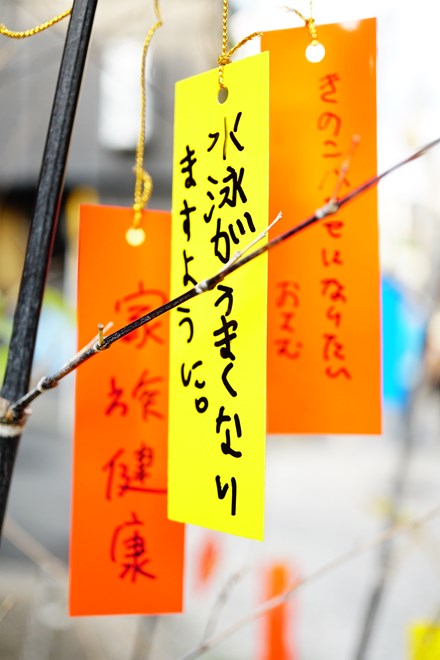 きのこ せになりたい
水泳がうまくなり
ますように。
家族健康